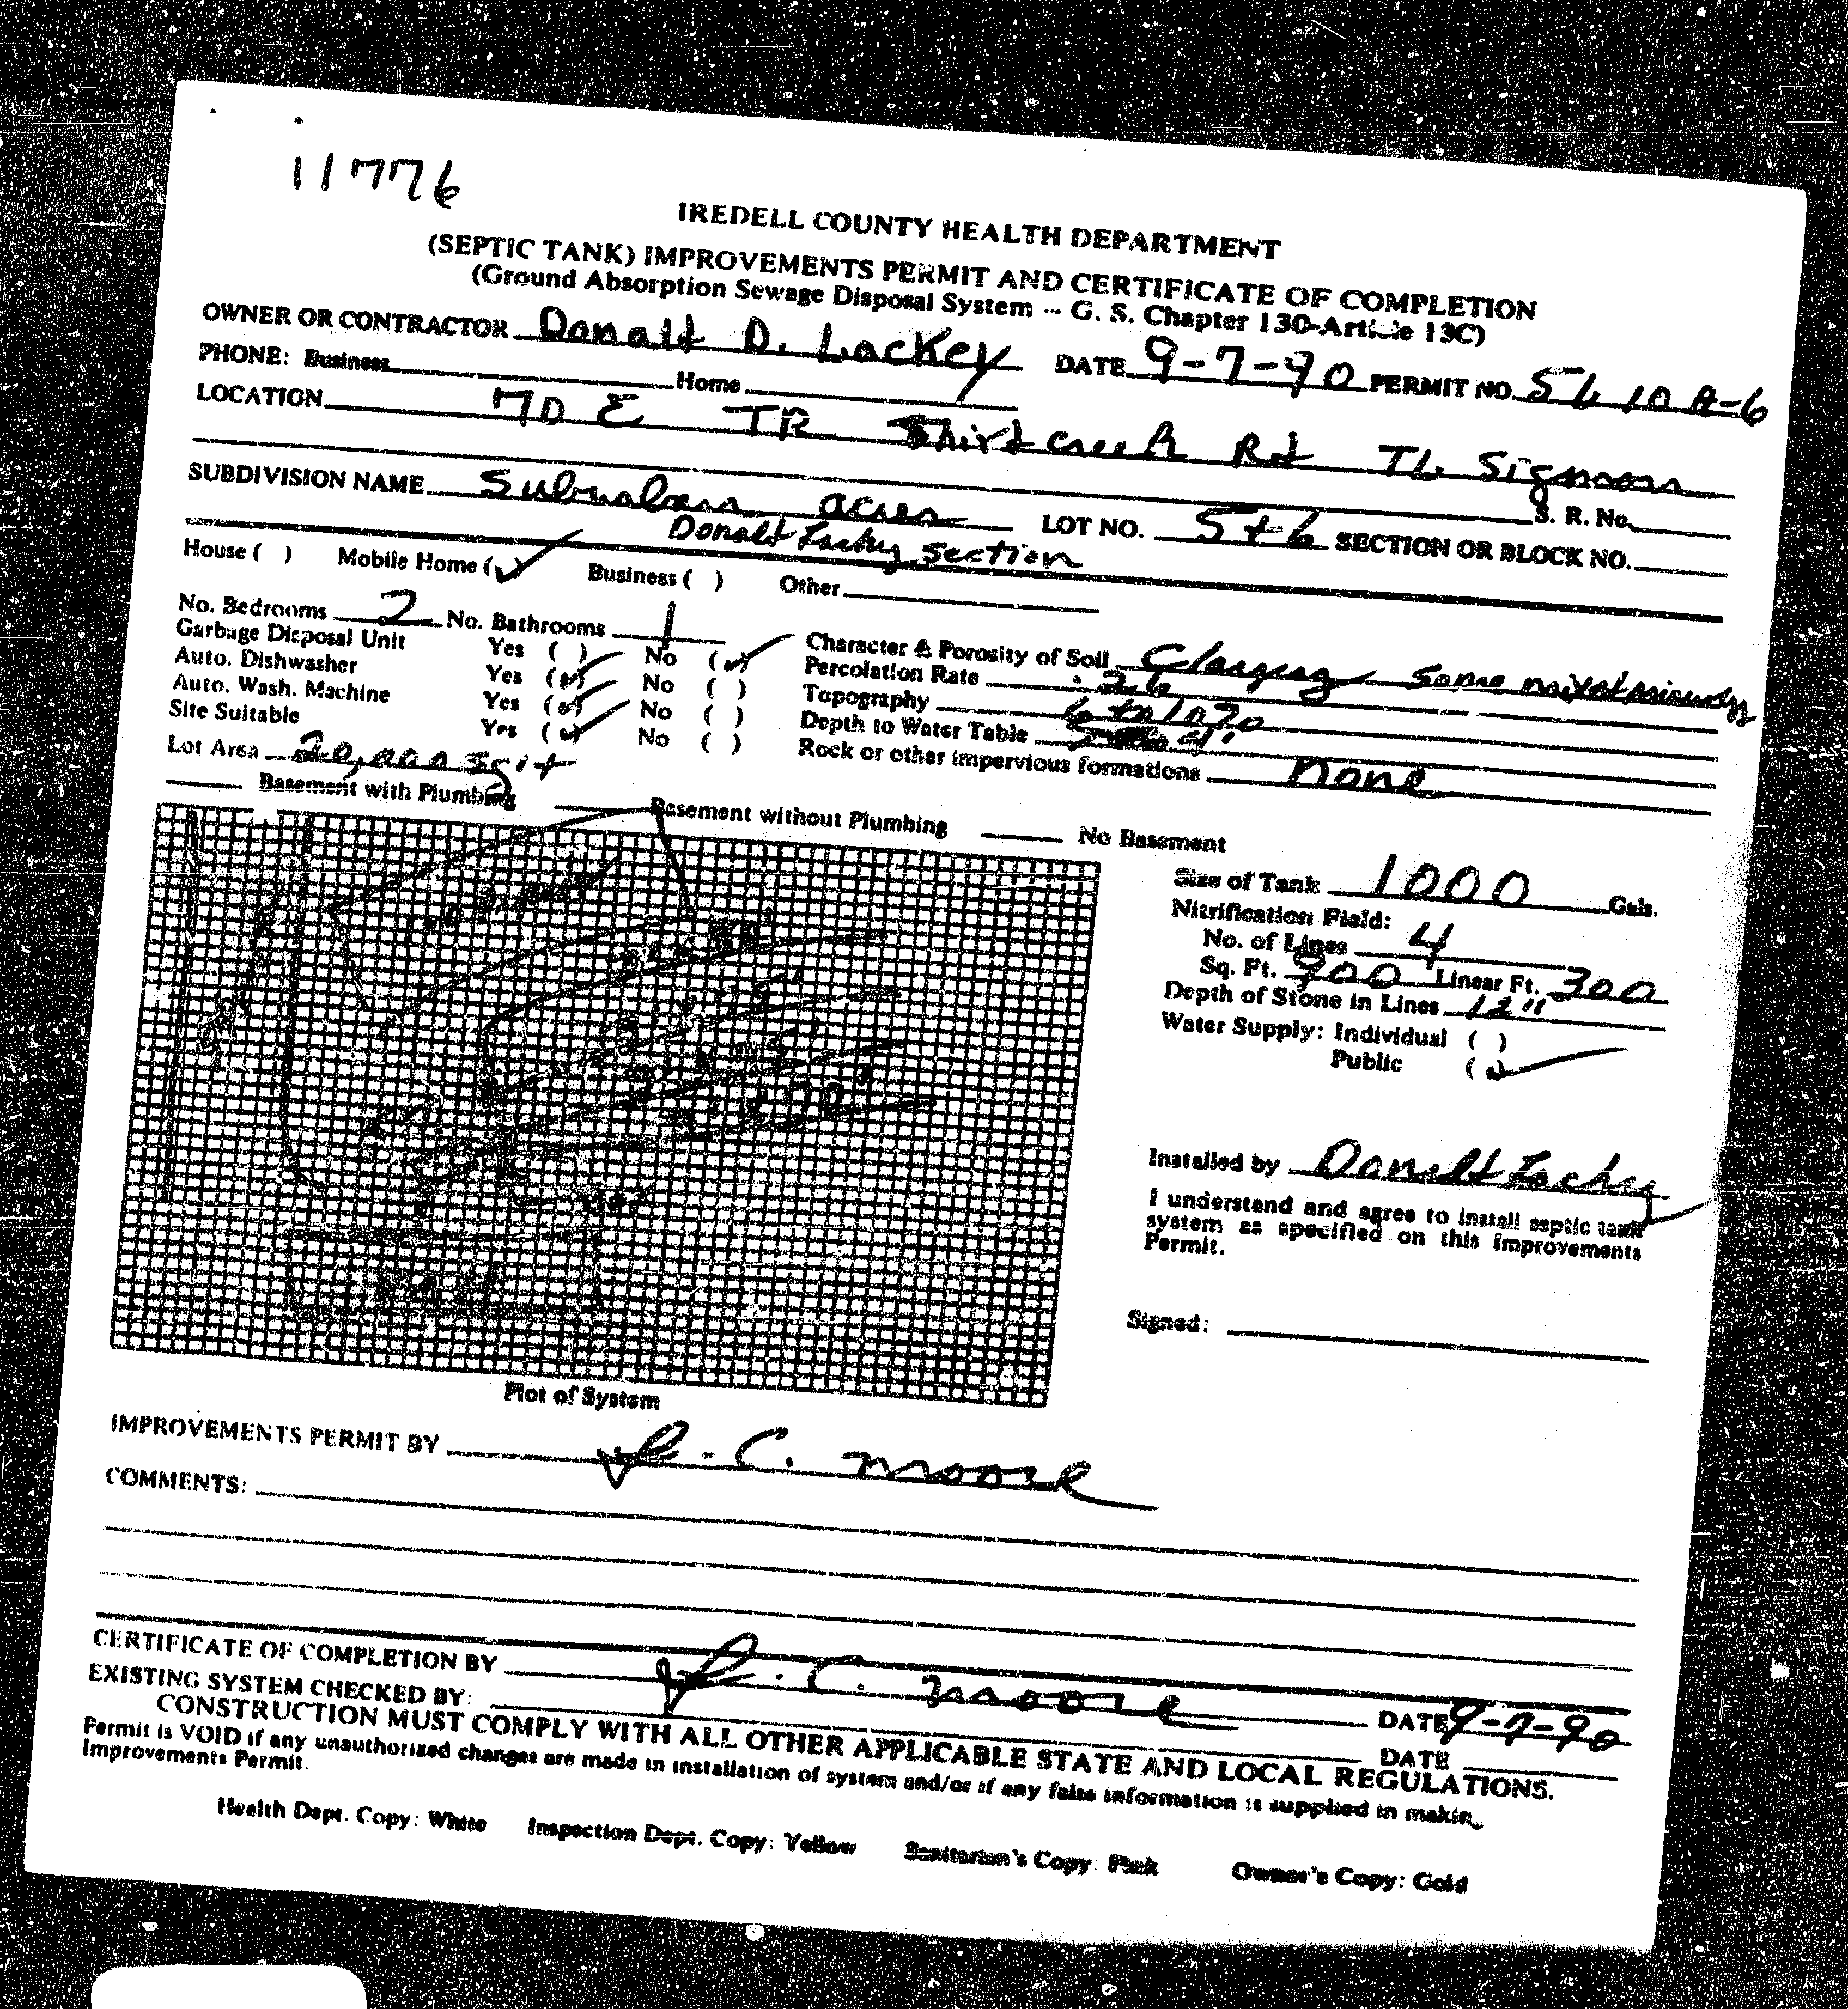 11776
IREDELL COUNTY HEALTH DEPARTMENT
(SEPTIC TANK) IMPROVEMENTS PERMIT AND CERTIFICATE OF COMPLETION
(Ground Absorption Sewage Disposal System -- G. S. Chapter 130-Article 13C)
OWNER OR CONTRACTOR Donald D. Lackey DATE 9-7-90 PERMIT NO. 5610A-6
PHONE: Business Home
LOCATION 70 E TR Third creek Rd TL Sigmon
S. R. No.
SUBDIVISION NAME Suburban acres LOT NO. 5+6 SECTION OR BLOCK NO.
Donald Lackey section
House ( ) Mobile Home (✓) Business ( ) Other
No. Bedrooms 2 No. Bathrooms 1
Garbage Disposal Unit Yes ( ) No (✓)
Auto. Dishwasher Yes (✓) No ( )
Auto. Wash. Machine Yes (✓) No ( )
Site Suitable Yes (✓) No ( )
Lot Area 20,000 sq ft
Character & Porosity of Soil Clayey some
Percolation Rate .26
Topography 6 to 10%
Depth to Water Table
Rock or other impervious formations none
Basement with Plumbing Basement without Plumbing No Basement
Size of Tank 1000 Gals.
Nitrification Field:
No. of Lines 4
Sq. Ft. 900 Linear Ft. 300
Depth of Stone in Lines 12"
Water Supply: Individual ( )
Public (✓)
Installed by Donald Lackey
I understand and agree to install septic tank
system as specified on this improvements
Permit.
Signed:
Plot of System
IMPROVEMENTS PERMIT BY C. Moore
COMMENTS:
CERTIFICATE OF COMPLETION BY C. Moore DATE 9-7-90
EXISTING SYSTEM CHECKED BY: DATE
CONSTRUCTION MUST COMPLY WITH ALL OTHER APPLICABLE STATE AND LOCAL REGULATIONS.
Permit is VOID if any unauthorized changes are made in installation of system and/or if any false information is supplied in makin
Improvements Permit.
Health Dept. Copy: White Inspection Dept. Copy: Yellow Sanitarian's Copy: Pink Owner's Copy: Gold